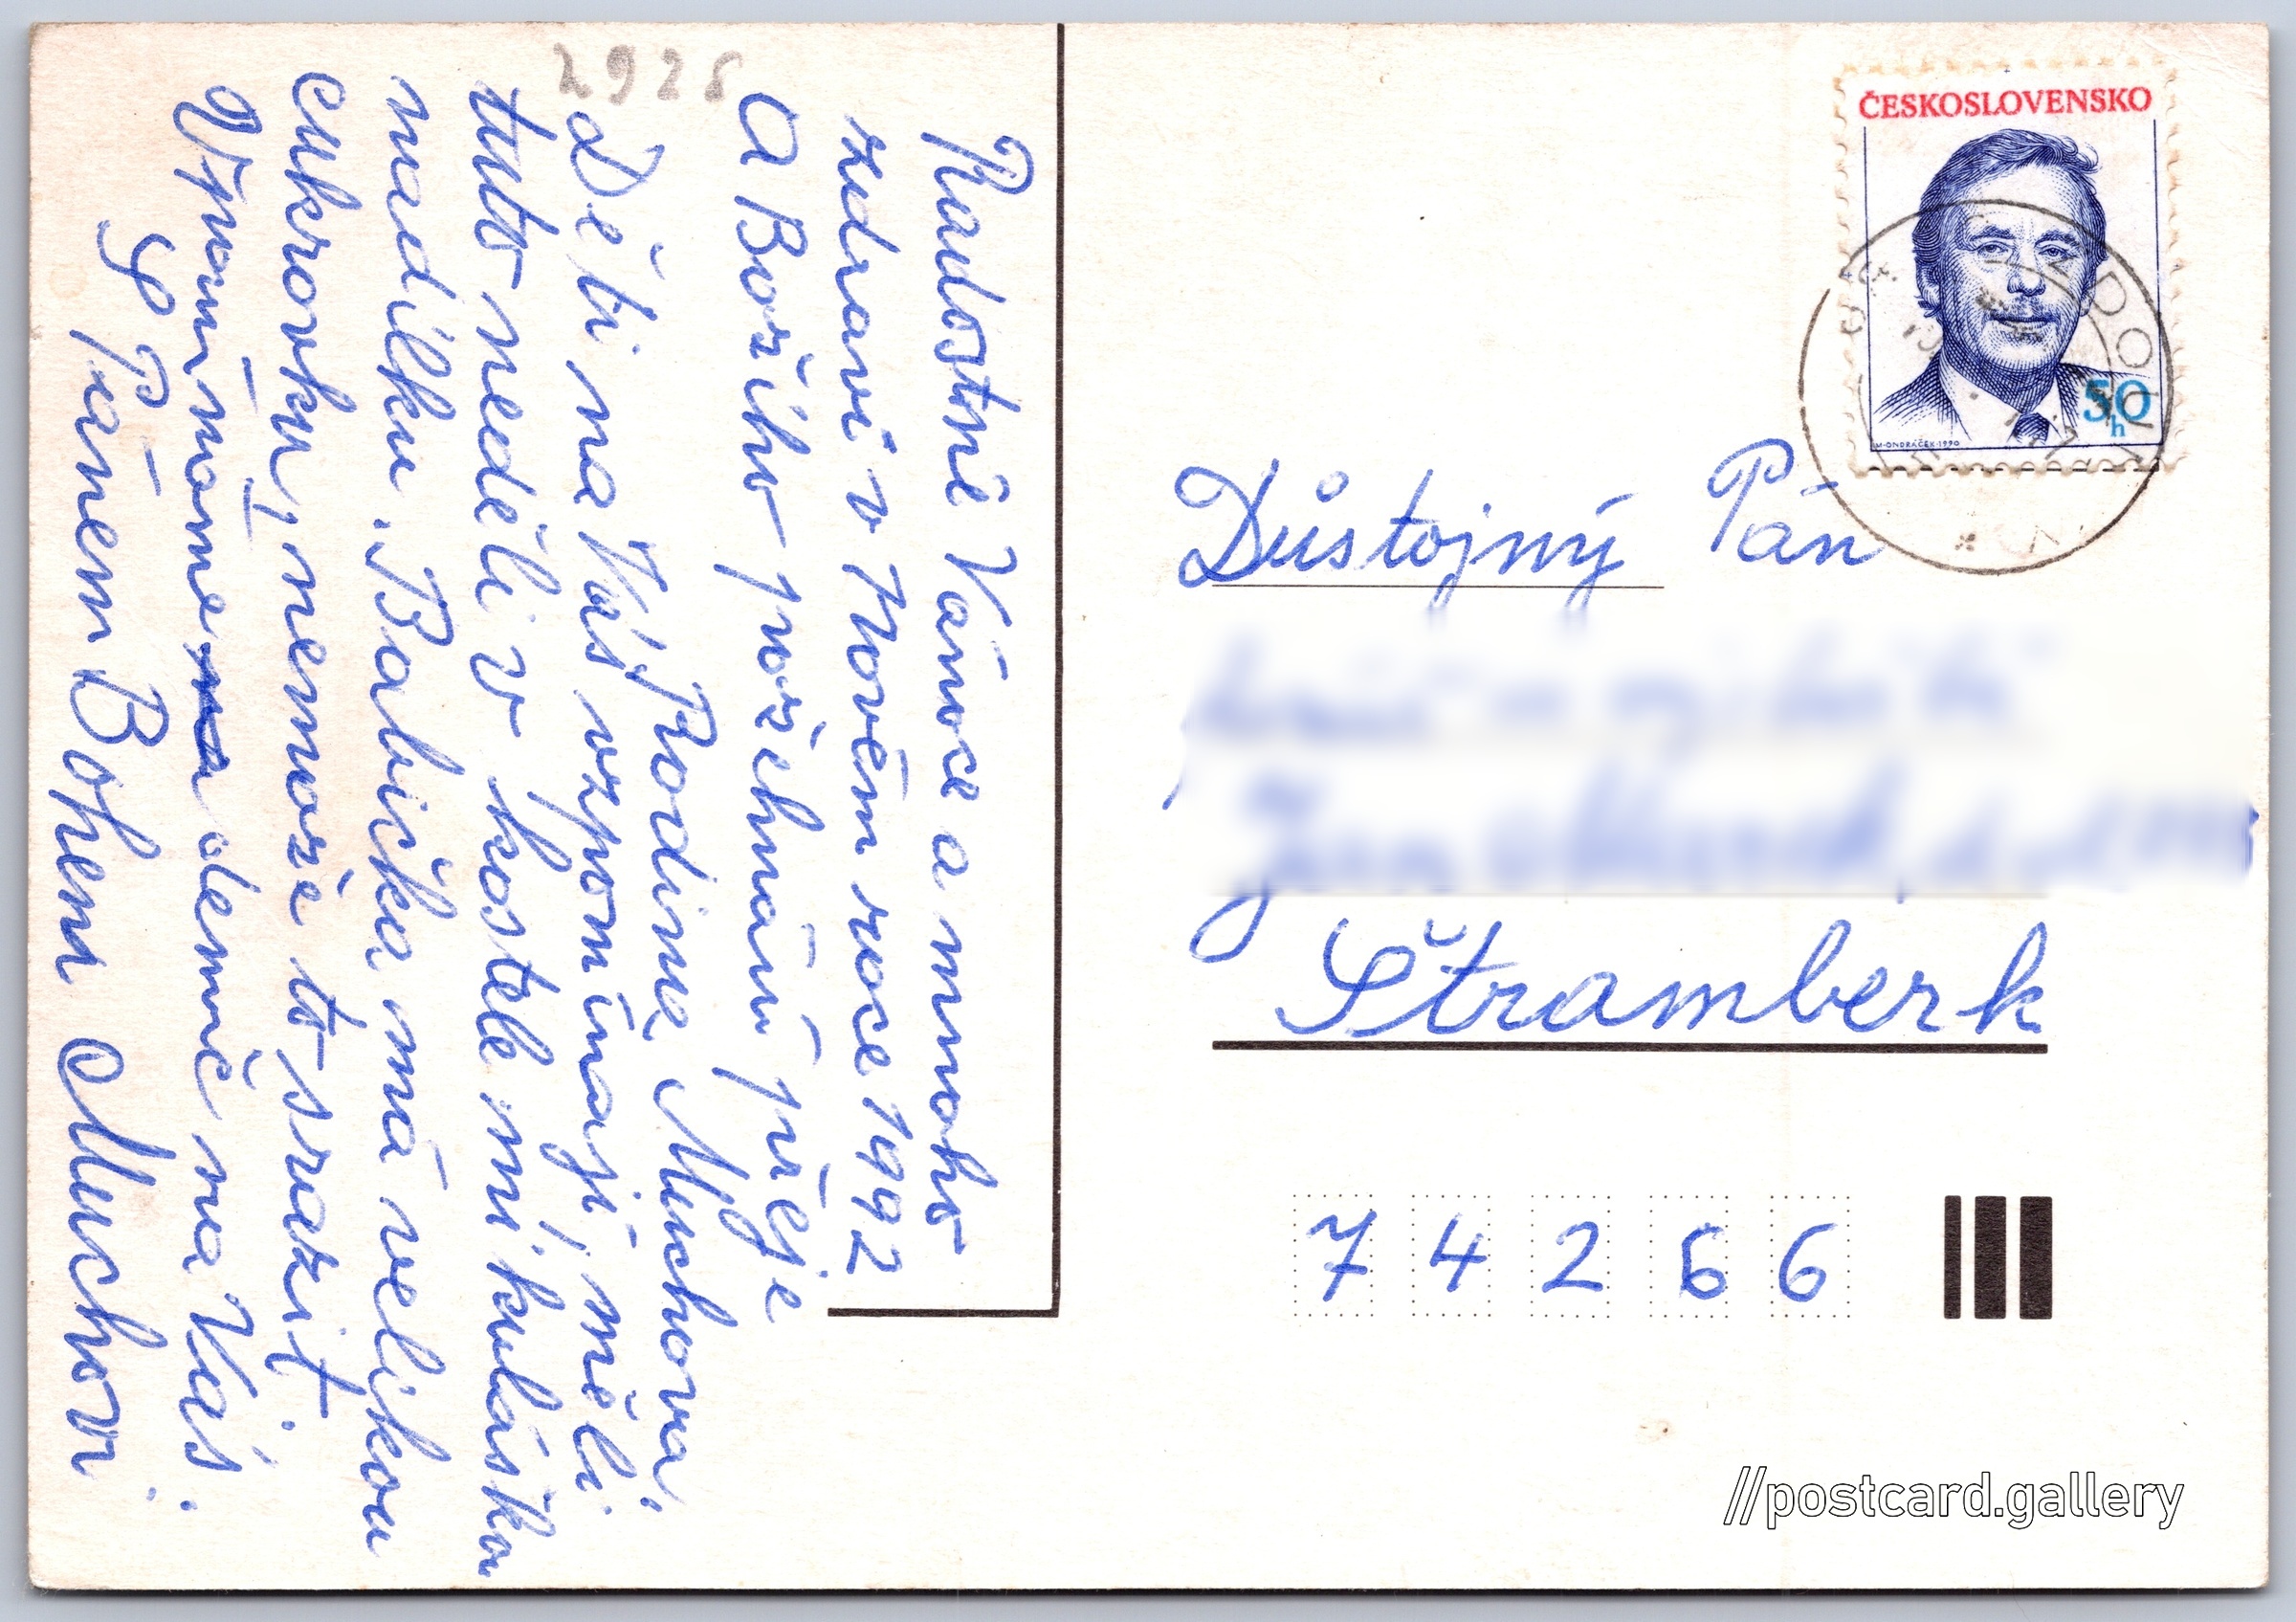 2928
Radostné Vánoce a mnoho
zdraví v Novém roce 1992
a Božího požehnání přeje
Rodina Muchova.
Děti na Vás vzpomínají, měli
tuto neděli v kostele mikulášskou
nadílku. Babička má velikou
cukrovku, nemože to srazit.
Vzpomínáme denně na Vás.
S Pánem Bohem Muchovi
ČESKOSLOVENSKO
50
h
M·ONDRÁČEK·1990
Důstojný Pán
Štramberk
7 4 2 6 6
//postcard.gallery